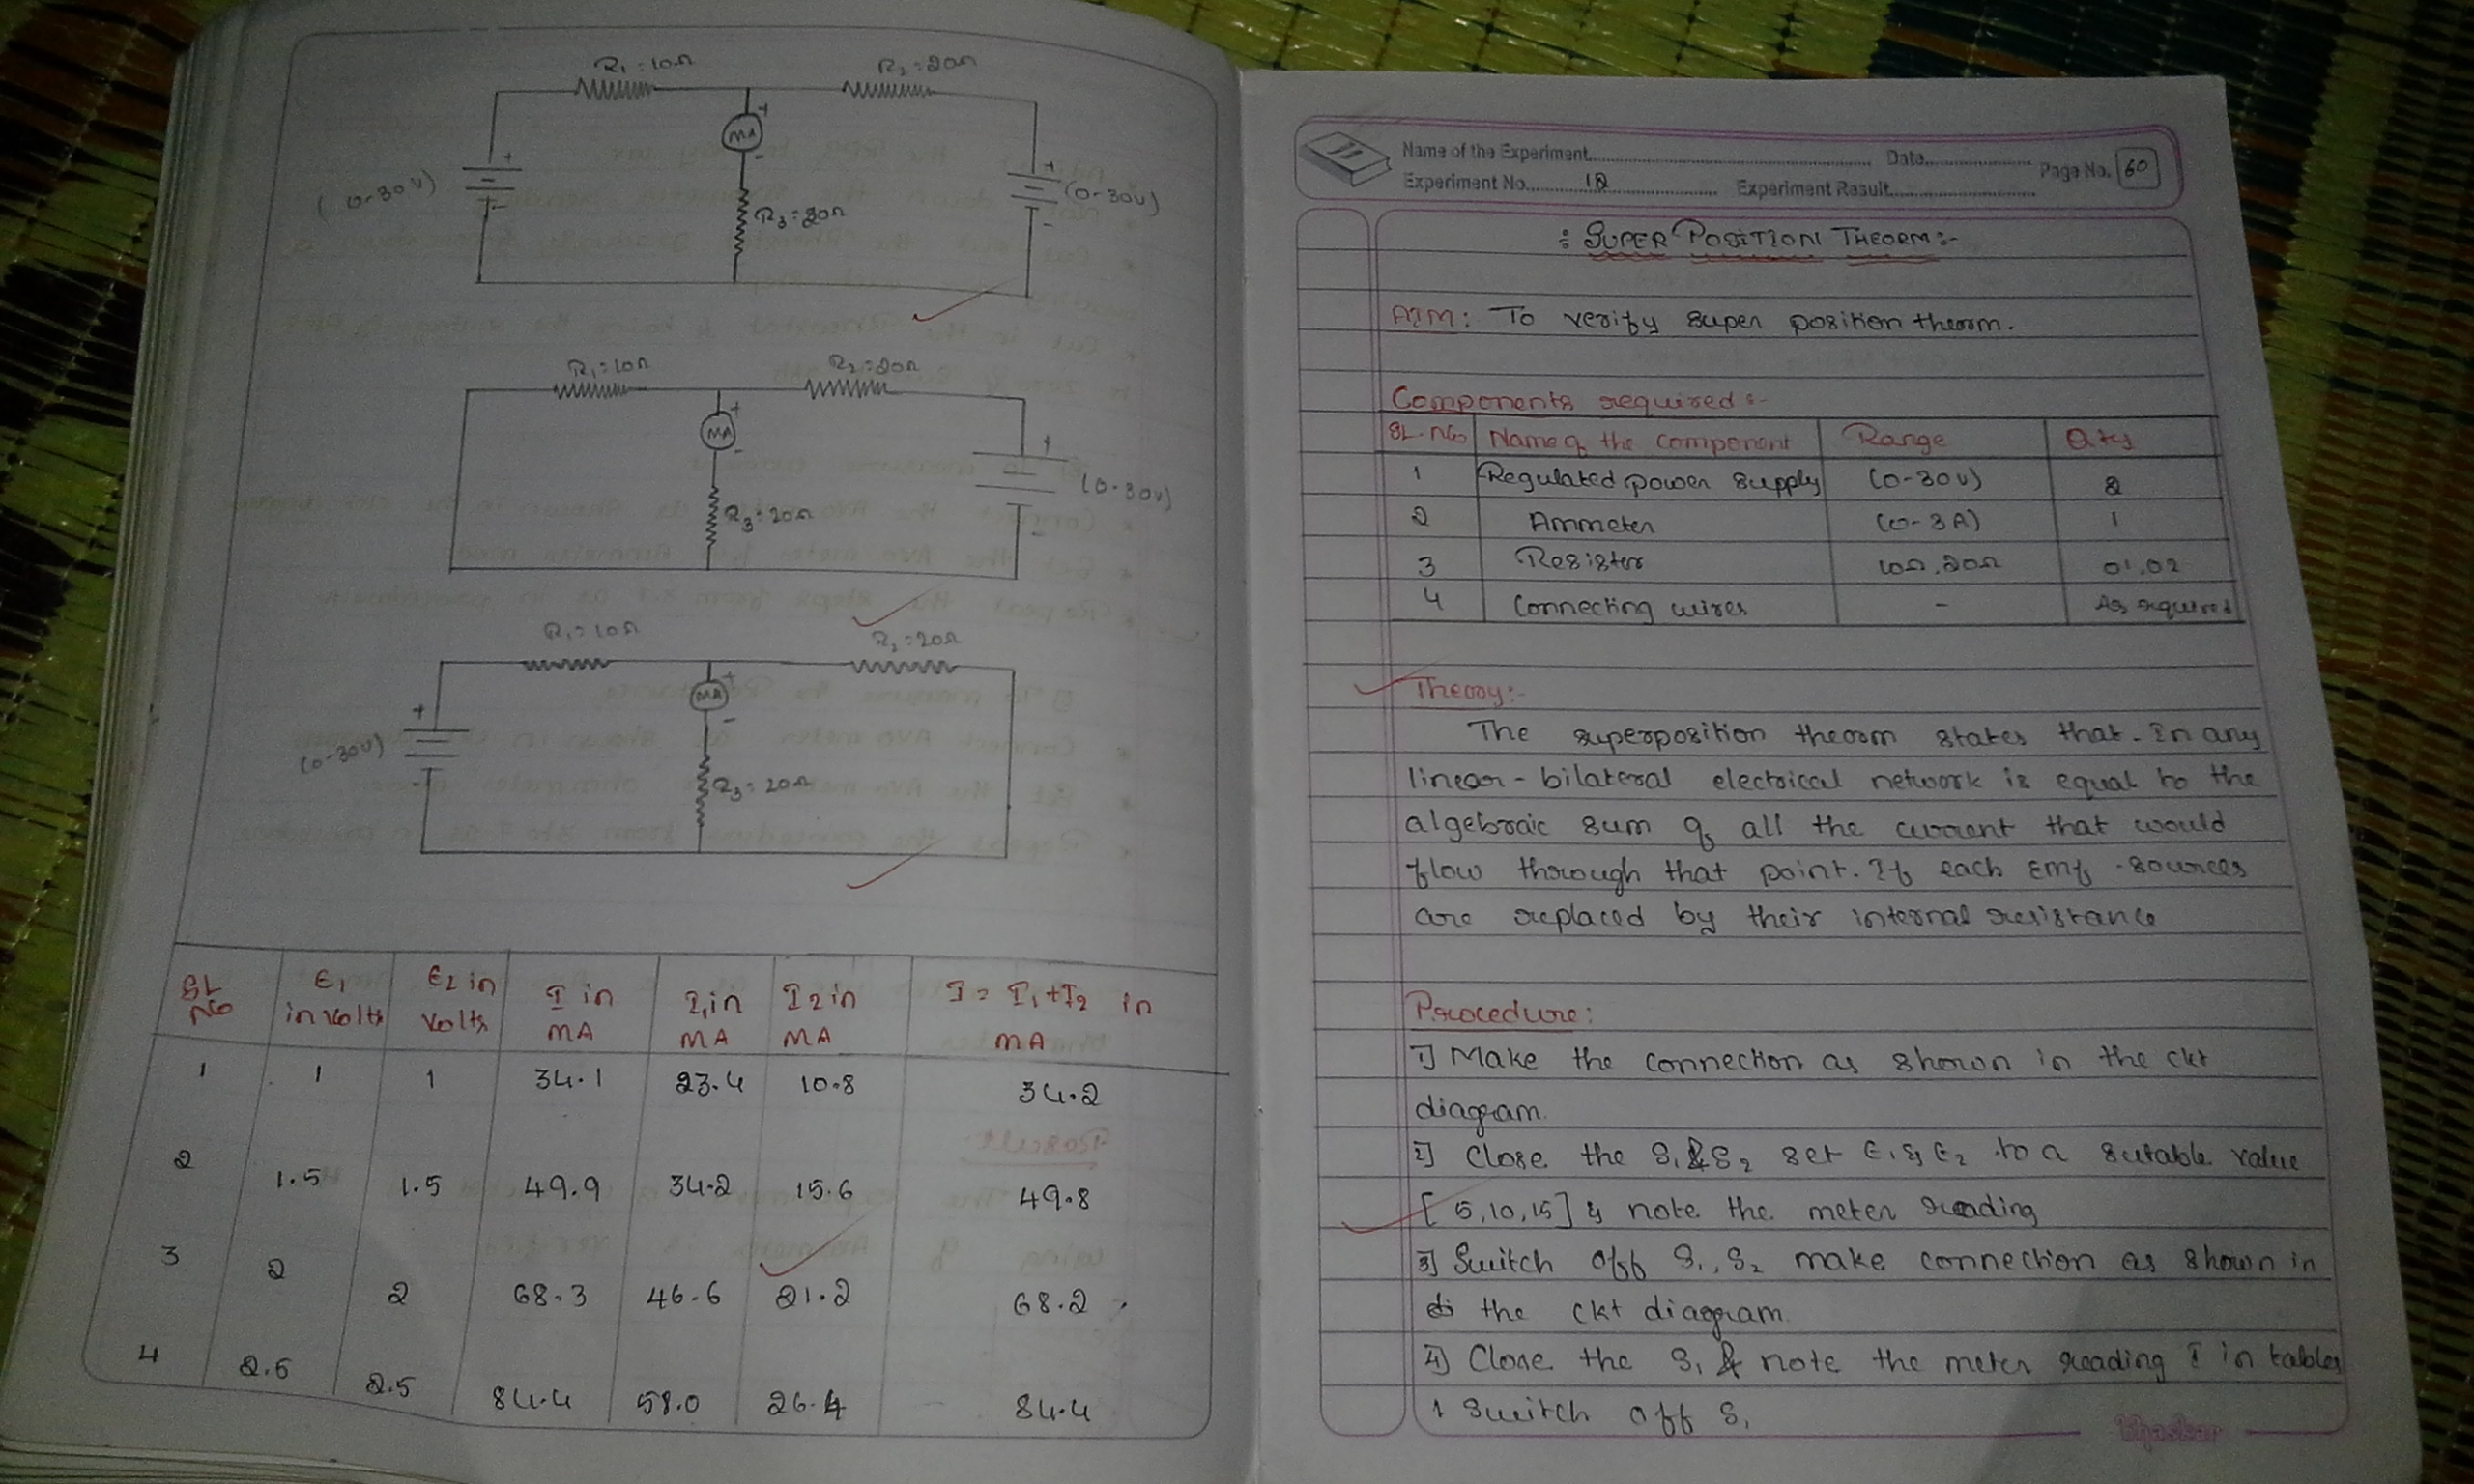 R₁=10Ω
R₂=20Ω
+
MA
-
+
(0-30V)
-
R₃=20Ω
+
(0-30V)
-
R₁=10Ω
R₂=20Ω
+
MA
-
+
(0-30V)
-
R₃=20Ω
R₁=10Ω
R₂=20Ω
+
MA
-
+
(0-30V)
-
R₃=20Ω
SL No | E₁ in volts | E2 in volts | I in MA | I₁ in MA | I2 in MA | I = I₁+I₂ in MA
1 | 1 | 1 | 34.1 | 23.4 | 10.8 | 34.2
2 | 1.5 | 1.5 | 49.9 | 34.2 | 15.6 | 49.8
3 | 2 | 2 | 68.3 | 46.6 | 21.2 | 68.2
4 | 2.5 | 2.5 | 84.4 | 58.0 | 26.4 | 84.4
Name of the Experiment Date
Page No. 60
Experiment No. 12 Experiment Result
: SUPER POSITION THEORM :-
AIM: To verify super position theorm.
Components required :-
SL.No | Name of the component | Range | Qty
1 | Regulated power supply | (0-30V) | 2
2 | Ammeter | (0-3A) | 1
3 | Resistor | 10Ω, 20Ω | 01, 02
4 | Connecting wires | - | As required
Theory:-
The superposition theorm states that. In any
linear-bilateral electrical network is equal to the
algebraic sum of all the current that would
flow through that point. If each Emf -sources
are replaced by their internal resistance
Procedure:
1] Make the connection as shown in the ckt
diagram.
2] Close the S₁ & S₂ set E₁ & E₂ to a sutable value
[5,10,15] & note the meter reading
3] Switch off S₁, S₂ make connection as shown in
the ckt diagram.
4] Close the S₁ & note the meter reading I in tables
1 Switch off S₁
Bhaskar